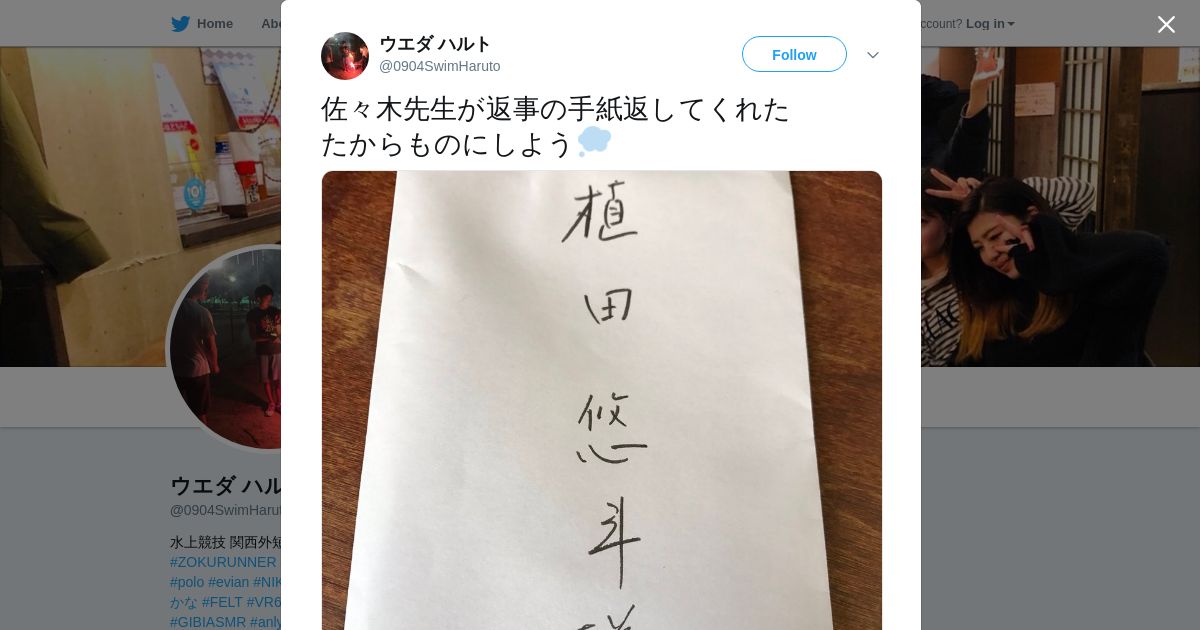 Home
Abo
ccount? Log in
ウエダ ハルト
@0904SwimHaruto
Follow
佐々木先生が返事の手紙返してくれた
たからものにしよう
植
田
悠
斗
ウエダ ハル
@0904SwimHaru
水上競技 関西外短
#ZOKURUNNER
#polo #evian #NIK
かな #FELT #VR6
#GIBIASMR #anly